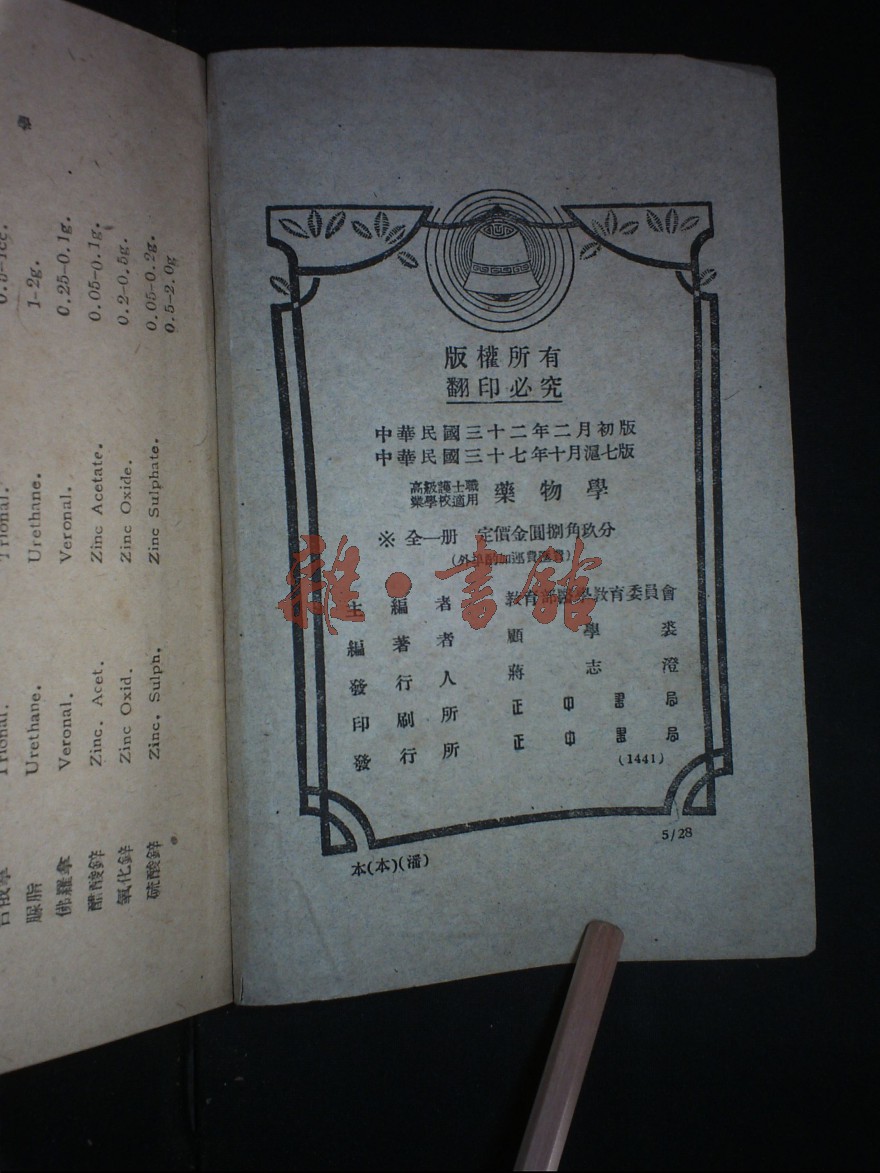 版權所有
翻印必究
中華民國三十二年二月初版
中華民國三十七年十月滬七版
高級護士職業學校適用 藥物學
※ 全一册 定價金圓捌角玖分
(外埠酌加運費匯費)
主編者 教育部醫學教育委員會
編著者 顧學裘
發行人 蔣志澄
印刷所 正中書局
發行所 正中書局
(1441)
5/28
本(本)(潘)
雜·書館
脲脂 Urethane. Urethane. 1-2g.
佛羅拿 Veronal. Veronal. 0.25-0.1g.
醋酸鋅 Zinc. Acet. Zinc Acetate. 0.05-0.1g.
氧化鋅 Zinc Oxid. Zinc Oxide. 0.2-0.5g.
硫酸鋅 Zinc. Sulph. Zinc Sulphate. 0.05-0.2g.
0.5-2.0g